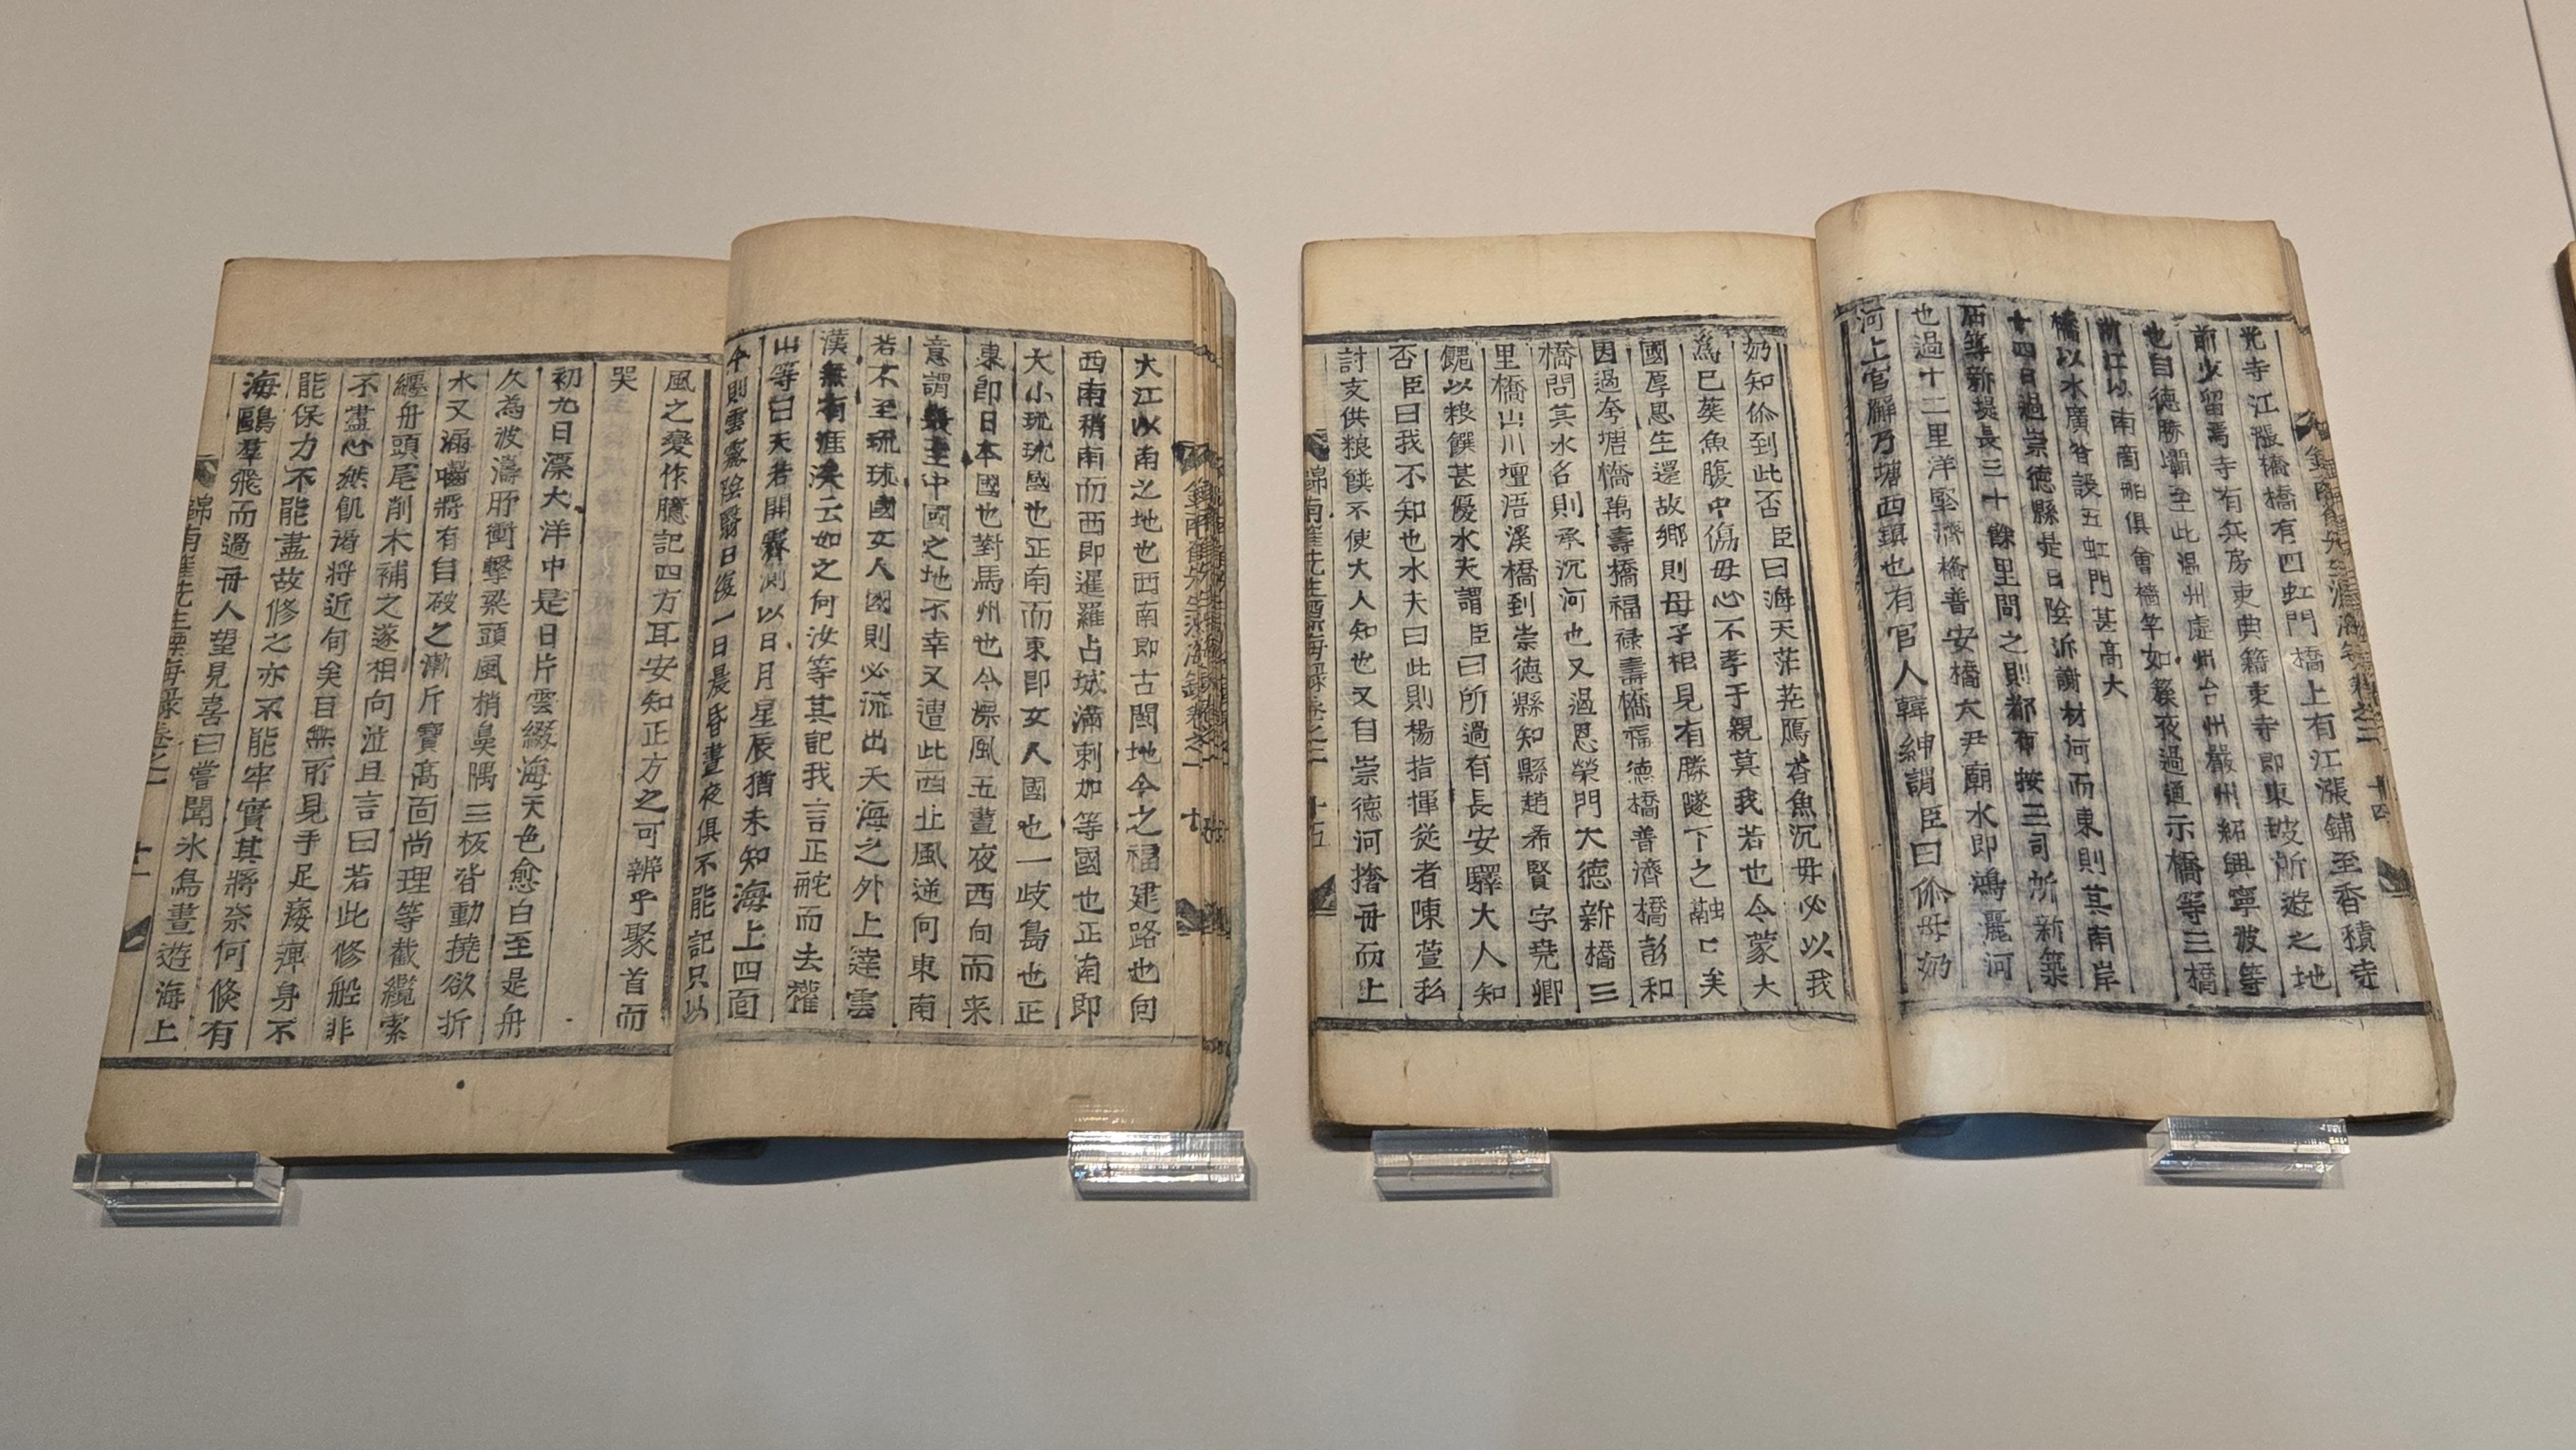 錦南崔先生漂海錄卷之一 十
大江以南之地也西南即古閩地今之福建路也向
西南稍南而西即暹羅占城滿剌加等國也正南即
大小琉球國也正南而東即女人國也一歧島也正
東即日本國也對馬州也今漂風五晝夜西向而来
意謂幾至中國之地不幸又遭此西北風逆向東南
若不至琉球國女人國則必流出天海之外上達雲
漢無有涯涘云如之何汝等其記我言正舵而去權
山等曰天若開霽測以日月星辰猶未知海上四面
今則雲霧陰翳日復一日晨昏晝夜俱不能記只以
風之變作臆記四方耳安知正方之可辨乎聚首而
哭
初九日漂大洋中是日片雲綴海天色愈白至是舟
久為波濤所衝擊梁頭風梢鼻隅三板皆動撓欲折
水又漏囓將有自破之漸斤寶高面尚理等截纜索
纏舟頭尾削木補之遂相向泣且言曰若此修舩非
不盡心然飢渴將近旬矣目無所見手足痿痺身不
能保力不能盡故修之亦不能牢實其將奈何倏有
海鷗羣飛而過舟人望見喜曰嘗聞水鳥晝遊海上
錦南崔先生漂海錄卷之一 十一
錦南崔先生漂海錄卷之二 十四
光寺江漲橋橋有四虹門橋上有江漲鋪至香積寺
前少留焉寺有兵房吏典籍吏寺即東坡所遊之地
也自德勝壩至此溫州處州台州嚴州紹興寧波等
浙江以南商舶俱會檣竿如簇夜過通示橋等三橋
橋以水廣各設五虹門甚高大
十四日過崇德縣是日陰泝謝村河而東則其南岸
石等新堤長三十餘里問之則都布按三司所新築
也過十二里洋堅濟橋普安橋大尹廟水即鴻麗河
河上官廨乃塘西鎮也有官人韓紳謂臣曰伱母奶
奶知伱到此否臣曰海天茫茫鴈杳魚沉母必以我
為已葬魚腹中傷母心不孝于親莫我若也今蒙大
國厚恩生還故鄉則母子相見有勝隧下之融匕矣
因過夲塘橋萬壽橋福禄壽橋福德橋普濟橋彭和
橋問其水名則承沉河也又過恩榮門大德新橋三
里橋山川壇浯溪橋到崇德縣知縣趙希賢字堯卿
餽以粮饌甚優水夫謂臣曰所過有長安驛大人知
否臣曰我不知也水夫曰此則楊指揮從者陳萱私
討支供粮饌不使大人知也又自崇德河撐舟而上
錦南崔先生漂海錄卷之二 十五